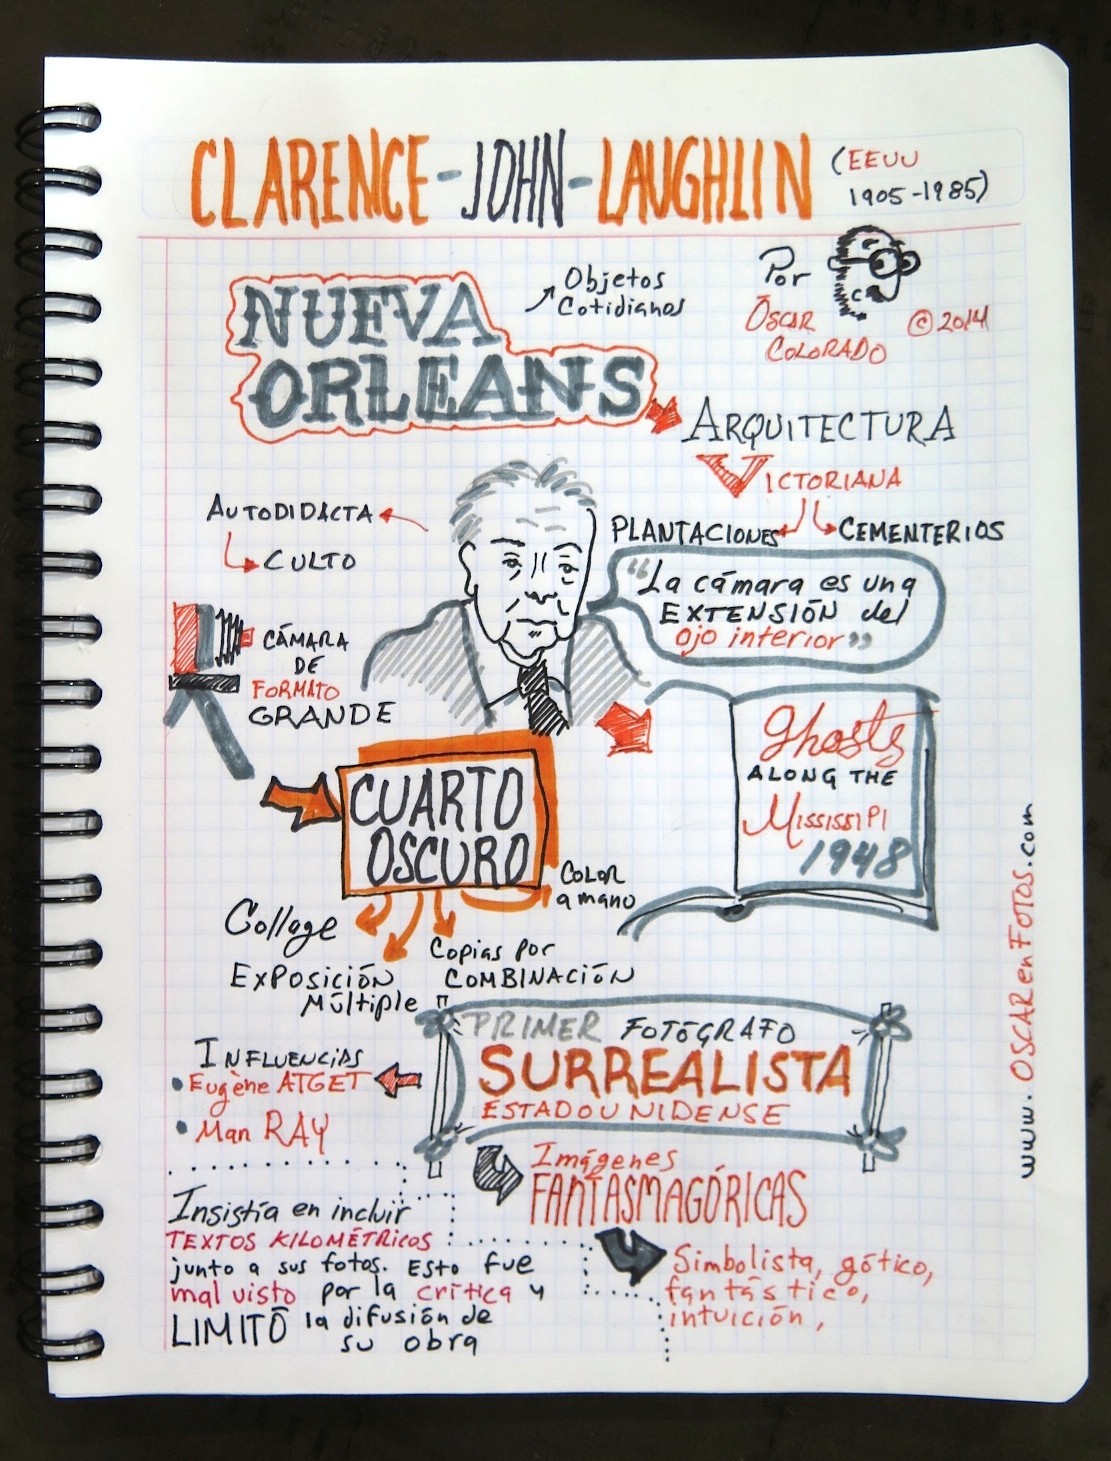 CLARENCE-JOHN-LAUGHLIN
(EEUU
1905-1985)
Por
ÓSCAR
COLORADO
© 2014
NUEVA
ORLEANS
Objetos
Cotidianos
ARQUITECTURA
VICTORIANA
PLANTACIONES
CEMENTERIOS
AUTODIDACTA
CULTO
"La cámara es una
EXTENSIÓN del
ojo interior"
CÁMARA
DE
FORMATO
GRANDE
Ghosts
ALONG THE
MISSISSIPI
1948
CUARTO
OSCURO
Color
a mano
Collage
EXPOSICIÓN
Múltiple
Copias por
COMBINACIÓN
PRIMER FOTÓGRAFO
SURREALISTA
ESTADOUNIDENSE
INFLUENCIAS
• Eugène ATGET
• Man RAY
Imágenes
FANTASMAGÓRICAS
Simbolista, gótico,
fantástico,
intuición,
Insistía en incluir
TEXTOS KILOMÉTRICOS
junto a sus fotos. Esto fue
mal visto por la crítica y
LIMITÓ la difusión de
su obra
www.OSCARenFOTOS.com